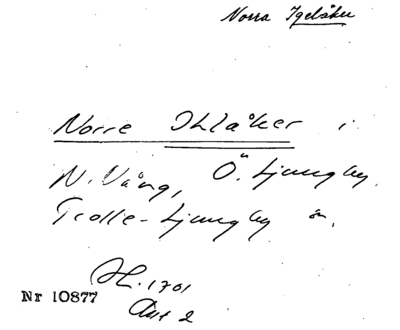 Norra Igelåker
Norre Ihlåker i
N. Vång, Ö. Ljungby,
Trolle-Ljungby sn.
JH. 1701
Nr 10877
Akt 2